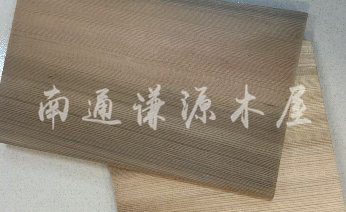 南通谦源木屋